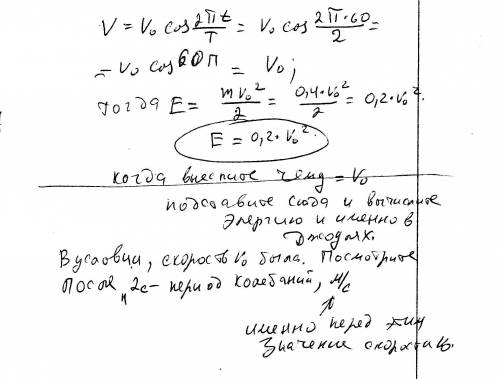 V = V₀ cos 2πt/T = V₀ cos 2π·60/2 =
= V₀ cos 60π = V₀;
тогда E = mV₀²/2 = 0,4·V₀²/2 = 0,2·V₀².
E = 0,2·V₀².
когда вместо = V₀
подставите сюда и вычислите
энергию и именно в
Джоулях.
В условии, скорость V₀ была. Посмотрите
После "2с – период колебаний, м/с
именно перед ним
значение скорости V₀.